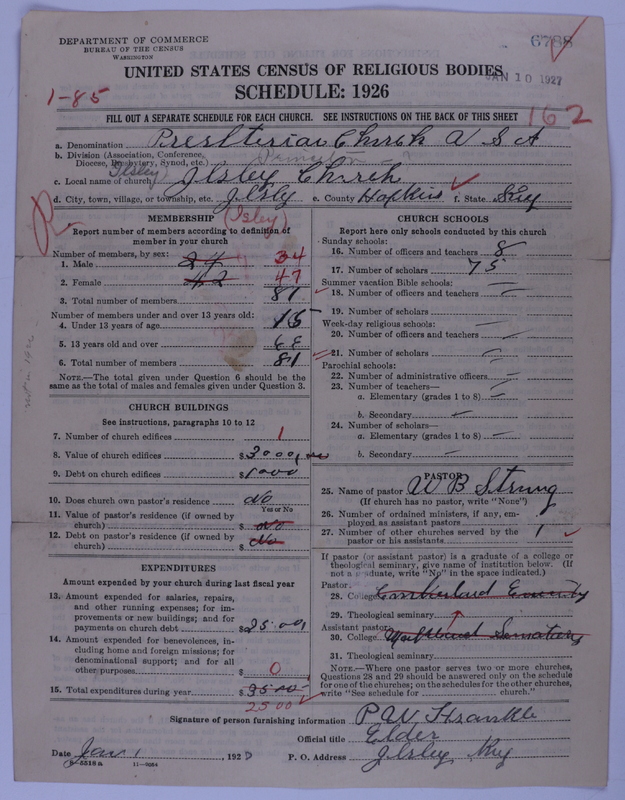 DEPARTMENT OF COMMERCE
BUREAU OF THE CENSUS
WASHINGTON
6788
JAN 10 1927
UNITED STATES CENSUS OF RELIGIOUS BODIES
SCHEDULE: 1926
1-85
FILL OUT A SEPARATE SCHEDULE FOR EACH CHURCH. SEE INSTRUCTIONS ON THE BACK OF THIS SHEET
162
a. Denomination Presbterian Church U S A
b. Division (Association, Conference, Diocese, Presbytery, Synod, etc.) Princeton
(Ilsley)
c. Local name of church Jlsley Church
d. City, town, village, or township, etc. Jlsly e. County Hopkins f. State Ky
(Isley)
MEMBERSHIP
Report number of members according to definition of member in your church
Number of members, by sex:
1. Male 34
2. Female 47
3. Total number of members 81
Number of members under and over 13 years old:
4. Under 13 years of age 15
5. 13 years old and over
6. Total number of members 81
NOTE.—The total given under Question 6 should be the
same as the total of males and females given under Question 3.
CHURCH BUILDINGS
See instructions, paragraphs 10 to 12
7. Number of church edifices 1
8. Value of church edifices $3000.00
9. Debt on church edifices $1000
10. Does church own pastor's residence No
Yes or No
11. Value of pastor's residence (if owned by church) $ No
12. Debt on pastor's residence (if owned by church) $ No
EXPENDITURES
Amount expended by your church during last fiscal year
13. Amount expended for salaries, repairs,
and other running expenses; for im-
provements or new buildings; and for
payments on church debt $25.00
14. Amount expended for benevolences, in-
cluding home and foreign missions; for
denominational support; and for all
other purposes $ 0
15. Total expenditures during year $
2500
CHURCH SCHOOLS
Report here only schools conducted by this church
Sunday schools:
16. Number of officers and teachers 8
17. Number of scholars 75
Summer vacation Bible schools:
18. Number of officers and teachers
19. Number of scholars
Week-day religious schools:
20. Number of officers and teachers
21. Number of scholars
Parochial schools:
22. Number of administrative officers
23. Number of teachers—
a. Elementary (grades 1 to 8)
b. Secondary
24. Number of scholars—
a. Elementary (grades 1 to 8)
b. Secondary
PASTOR
25. Name of pastor W B Strung
(If church has no pastor, write "None")
26. Number of ordained ministers, if any, em-
ployed as assistant pastors
27. Number of other churches served by the
pastor or his assistants 1
If pastor (or assistant pastor) is a graduate of a college or
theological seminary, give name of institution below. (If
not a graduate, write "No" in the space indicated.)
Pastor:
28. College
29. Theological seminary
Assistant pastor:
30. College
31. Theological seminary
NOTE.—Where one pastor serves two or more churches,
Questions 28 and 29 should be answered only on the schedule
for one of the churches; on the schedules for the other churches,
write "See schedule for church."
Signature of person furnishing information P W
Official title Elder
Date Jan 1, 192 P. O. Address Jlsley Ky
8-5518a 11-9054